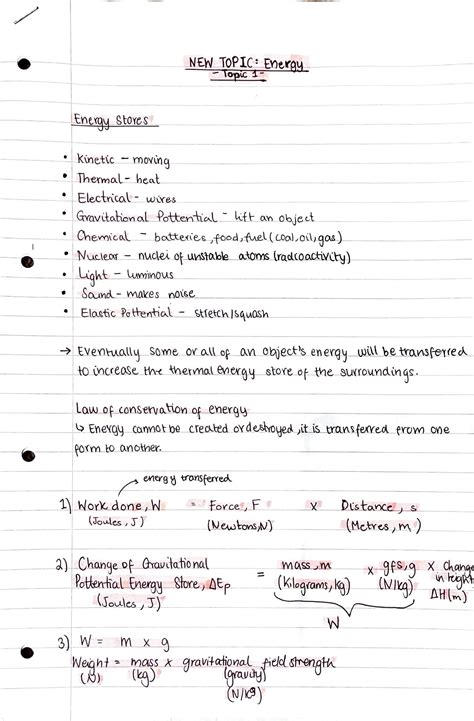 NEW TOPIC: Energy
- Topic 1 -
Energy Stores
• Kinetic - moving
• Thermal - heat
• Electrical - wires
• Gravitational Pottential - lift an object
• Chemical - batteries, food, fuel (coal, oil, gas)
• Nuclear - nuclei of unstable atoms (radcoactivity)
• Light - luminous
• Sound - makes noise
• Elastic Potential - stretch/squash
→ Eventually some or all of an object's energy will be transferred
to increase the thermal energy store of the surroundings.
Law of conservation of energy
↳ Energy cannot be created or destroyed, it is transferred from one
form to another.
→ energy transferred
1) Work done, W = Force, F x Distance, s
(Joules, J) (Newtons, N) (Metres, m)
2) Change of Gravitational = mass, m x gfs, g x Change
Potential Energy Store, ΔEp (Kilograms, kg) (N/kg) in height
(Joules, J) ΔH (m)
W
3) W = m x g
Weight = mass x gravitational field strength
(N) (kg) (gravity)
(N/kg)